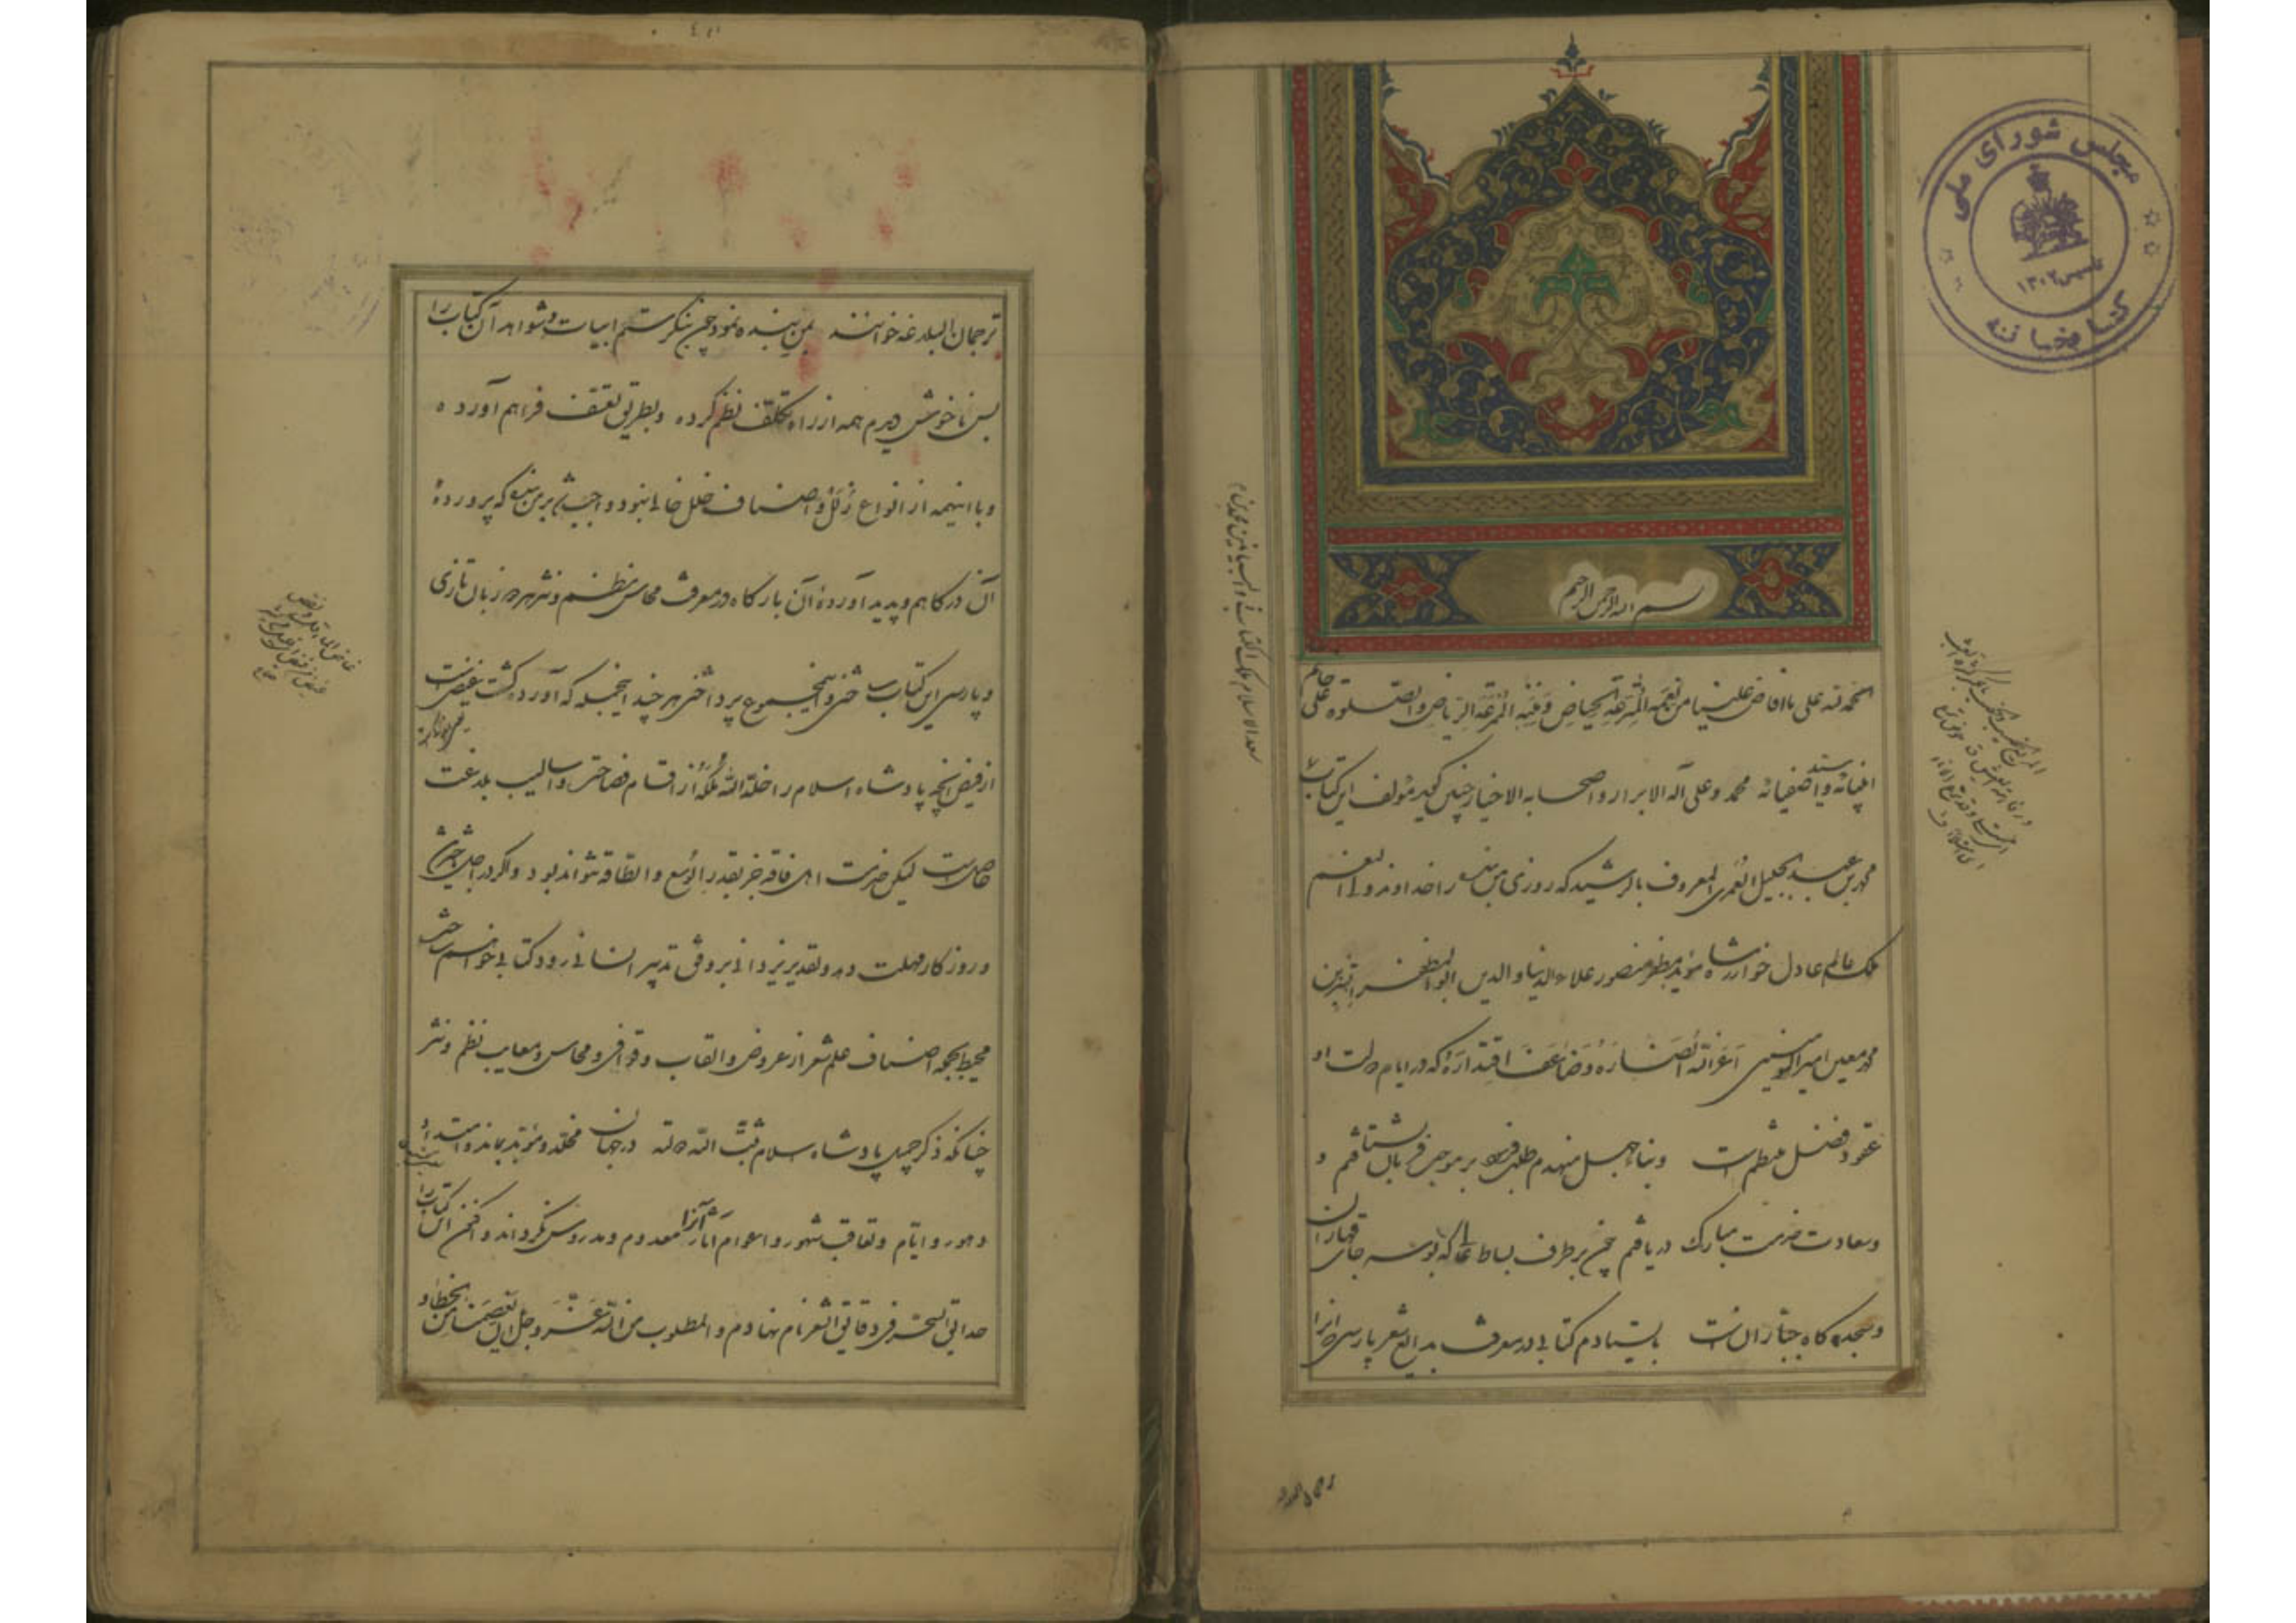 مجلس شورای ملی
تاسیس ۱۳۰۲
کتابخانه
بسم الله الرحمن الرحیم
الحمد لله علی ما افاض علینا من نعمه المترعة الحیاض و مننه الممرعة الریاض والصلوة علی خاتم
انبیائه و سید اصفیائه محمد و علی آله الابرار و اصحابه الاخیار چنین گوید مؤلف این کتاب
محمد بن عبد الجلیل العمری المعروف بالرشید که روزی من بنده را خداوند ولی النعم
ملک عالم عادل خوارزمشاه مؤید مظفر منصور علاء الدنیا والدین ابو المظفر اتسز بن
محمد معین امیر المومنین اعز الله انصاره و ضاعف اقتداره که در ایام دولت او
عقود فضل منتظم است و بناء جهل منهدم طلب فرمود بر موجب فرمان بشتافتم و
و سعادت خدمت مبارک دریافتم چون بر طرف بساط عالی که بوسه جای قهاران
و سجده گاه جباران است بایستادم کتابی در معرفت بدایع شعر پارسی که آنرا
ترجمان البلاغه خوانند بمن بنده نمود چون بنگرستم ابیات و شواهد آن کتاب را
بس ناخوش دیدم همه از راه تکلف نظم کرده و بطریق تعسف فراهم آورده
و با اینهمه از انواع زلل و اصناف خلل خالی نبود واجب شد بر من بنده که پروردهٔ
آن درگاهم و پدید آوردهٔ آن بارگاه در معرفت محاسن نظم و نثر هر دو زبان تازی
و پارسی این کتاب ساختن و این مجموع پرداختن هر چند اینجمله که آورده گشت غیضی است
از فیض آنچه پادشاه اسلام را خلد الله ملکه از اقسام فصاحت و اسالیب بلاغت
حاصل است لیکن خدمت اهل فاقه جز بقدر الوسع والطاقة نتواند بود و اگر در اجل تاخیری
و روزگار مهلت دهد و تقدیر یزدانی بر وفق تدبیر انسانی رود کتابی خواهم ساخت
محیط بجمله اصناف علم شعر از عروض و القاب و قوافی و محاسن و معایب نظم و نثر
چنانکه ذکر جمیل پادشاه اسلام ثبت الله دولته در جهان مخلد و مؤبد بماند و امتداد
دهور و ایام و تعاقب شهور و اعوام آثار آنرا معدوم و مدروس نگرداند و من این کتاب را
حدائق السحر فی دقائق الشعر نام نهادم و المطلوب من الله عز و جل ان یعصمنا من الخطاء و